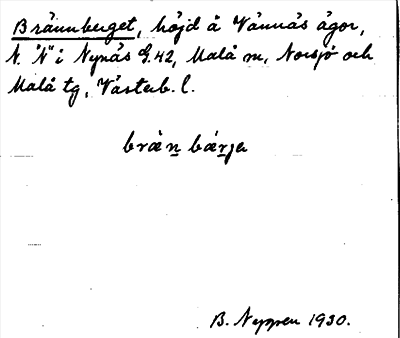 Brännberget, höjd å Vännäs ägor,
N. "N" i Nynäs G.42, Malå m, Norsjö och
Malå tg, Västerb. l.
brän bärja
B. Neppen 1930.